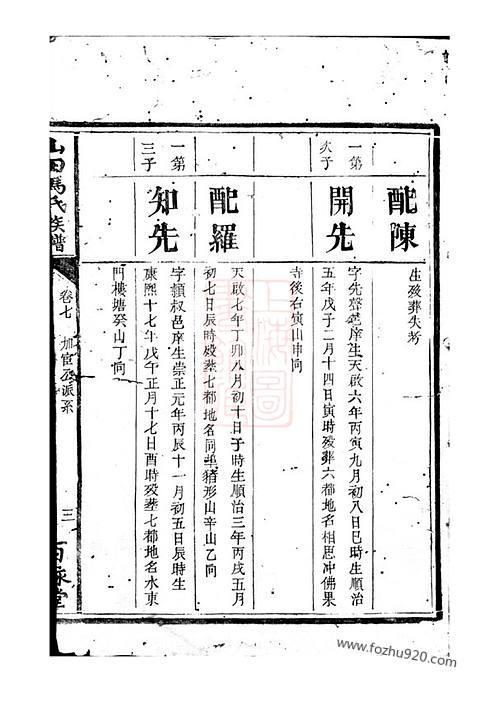 配陳
生殁葬失考
一第
次子
開先
字先聲邑庠生天啟六年丙寅九月初八日巳時生順治
五年戊子二月十四日寅時殁葬六都地名相思冲佛果
寺後右寅山申向
配羅
天啟七年丁卯八月初十日子時生順治三年丙戌五月
初七日辰時殁葬七都地名同𡊮豬形山辛山乙向
一第
三子
知先
字頴叔邑庠生崇正元年丙辰十一月初五日辰時生
康熙十七年戊午正月十七日酉時殁葬七都地名水東
門樓塘癸山丁向
山田馬氏族譜
卷七
加官公派系
三
百承堂
www.fozhu920.com